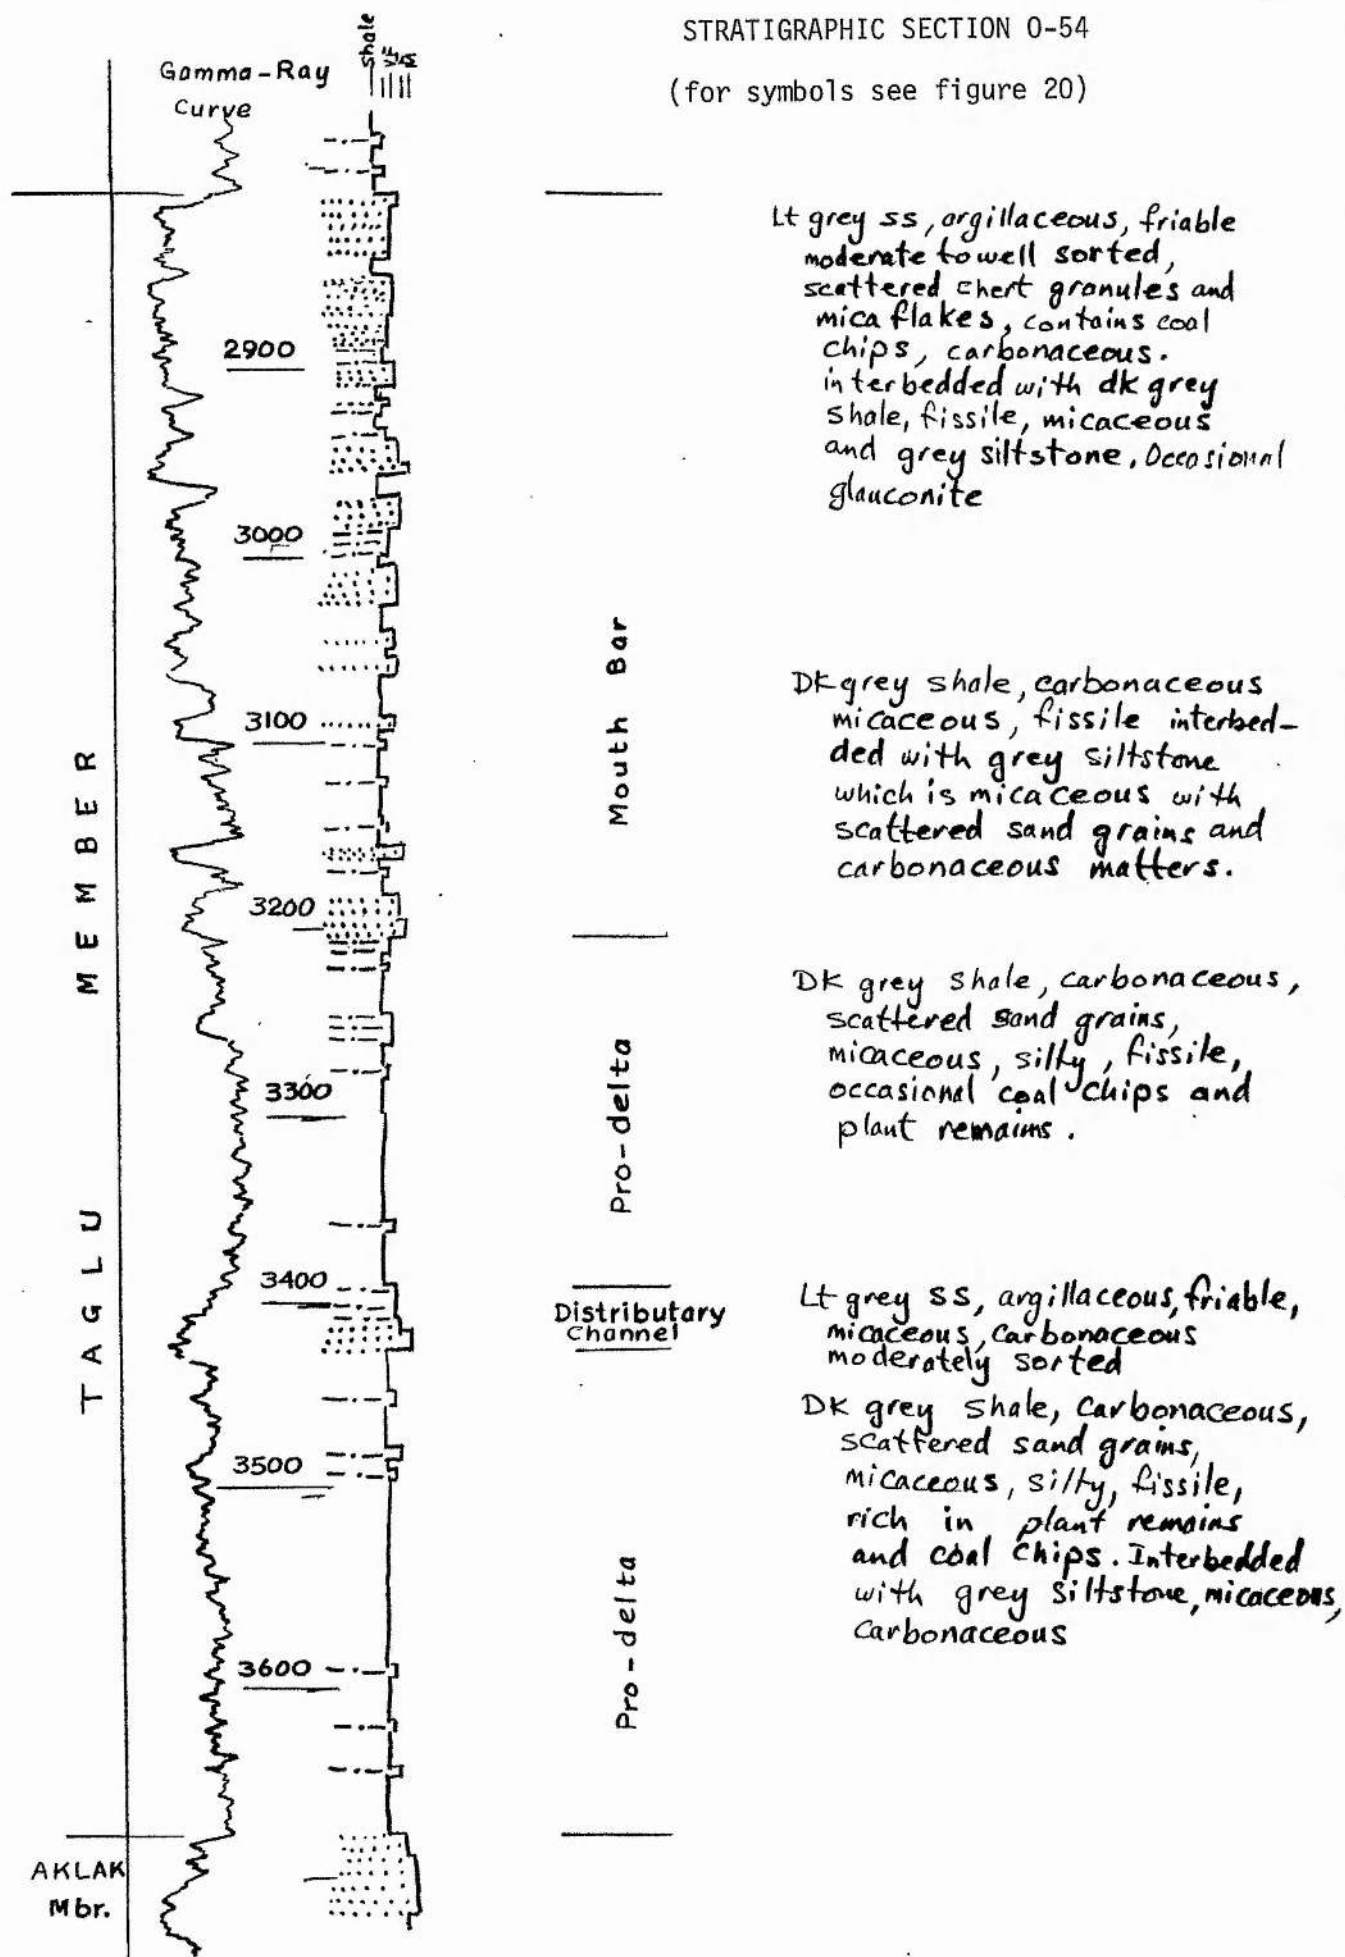 STRATIGRAPHIC SECTION O-54
(for symbols see figure 20)
Gamma-Ray
Curve
shale
VF
F
M
2900
3000
3100
3200
3300
3400
3500
3600
TAGLU MEMBER
AKLAK
Mbr.
Mouth Bar
Pro-delta
Distributary
Channel
Pro-delta
Lt grey ss, argillaceous, friable
moderate to well sorted,
scattered chert granules and
mica flakes, contains coal
chips, carbonaceous.
interbedded with dk grey
shale, fissile, micaceous
and grey siltstone. Occasional
glauconite
DK grey shale, carbonaceous
micaceous, fissile interbed-
ded with grey siltstone
which is micaceous with
scattered sand grains and
carbonaceous matters.
DK grey shale, carbonaceous,
scattered sand grains,
micaceous, silty, fissile,
occasional coal chips and
plant remains.
Lt grey SS, argillaceous, friable,
micaceous, carbonaceous
moderately sorted
DK grey shale, carbonaceous,
scattered sand grains,
micaceous, silty, fissile,
rich in plant remains
and coal chips. Interbedded
with grey siltstone, micaceous,
carbonaceous